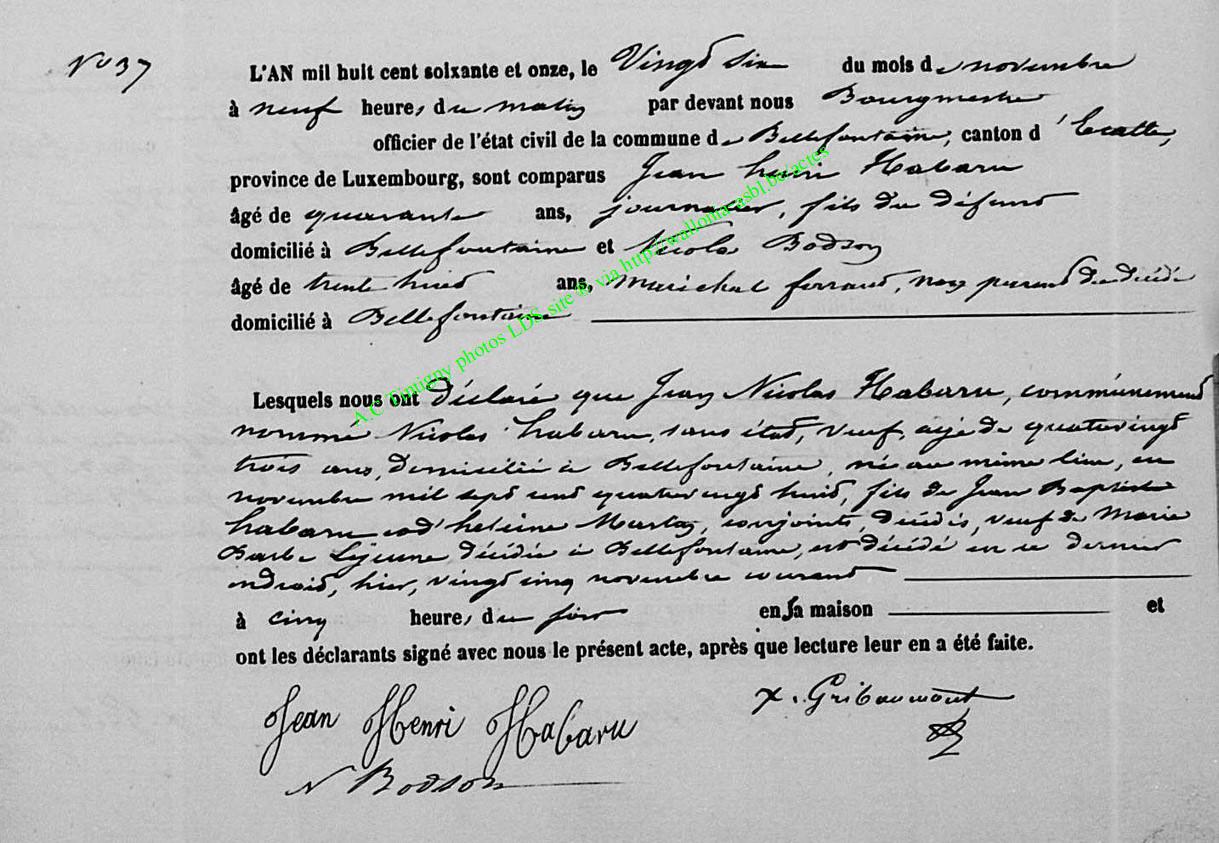 No 37
L'AN mil huit cent soixante et onze, le Vingt six du mois de novembre
à neuf heures du matin par devant nous Bourgmestre
officier de l'état civil de la commune de Bellefontaine, canton d'Etalle,
province de Luxembourg, sont comparus Jean henri Habaru
âgé de quarante ans, journalier, fils du défunt
domicilié à Bellefontaine et Nicolas Bodson
âgé de trente huit ans, marichal ferrant, non parent du décédé
domicilié à Bellefontaine
Lesquels nous ont déclaré que Jean Nicolas Habaru, communément
nommé Nicolas habaru, sans état, veuf, agé de quatrevingt
trois ans, domicilié à Bellefontaine, né au même lieu, en
novembre mil sept cent quatrevingt huit, fils de Jean Baptiste
habaru et d'heleine conjoints, décédés, veuf de Marie
Barbe Lejeune décédée à Bellefontaine, est décédé en ce dernier
endroit, hier, vingt cinq novembre courant
à cinq heures du soir en sa maison et
ont les déclarants signé avec nous le présent acte, après que lecture leur en a été faite.
Jean Henri Habaru
x. Gribaumont
N Bodson
A.C Tintigny photos LDS site @ via http://wallonia-asbl.be/actes